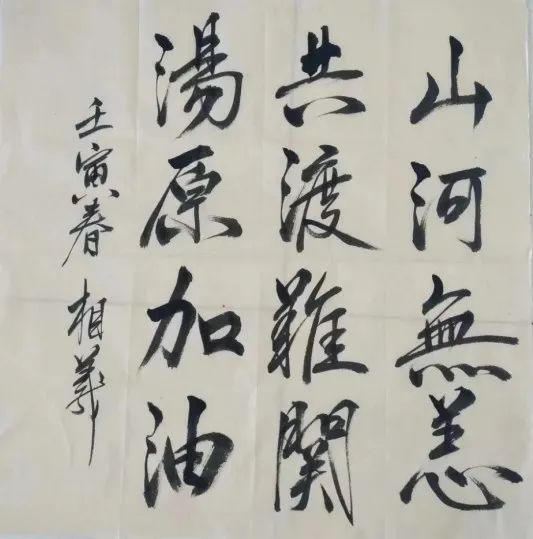 山河無恙
共渡難関
湯原加油
壬寅春 相義